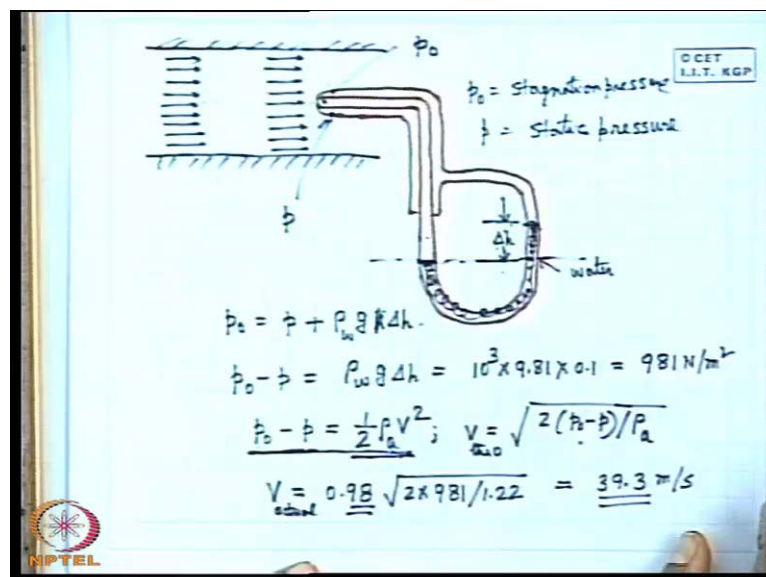 p₀
© CET
I.I.T. KGP
p₀ = stagnation pressure
p = static pressure
p
Δh
water
p₀ = p + ρ_w g Δh.
p₀ - p = ρ_w g Δh = 10³ × 9.81 × 0.1 = 981 N/m²
p₀ - p = 1/2 ρ_a V² ; V_theo = √2(p₀-p)/ρ_a
V_actual = 0.98 √2×981/1.22 = 39.3 m/s
NPTEL